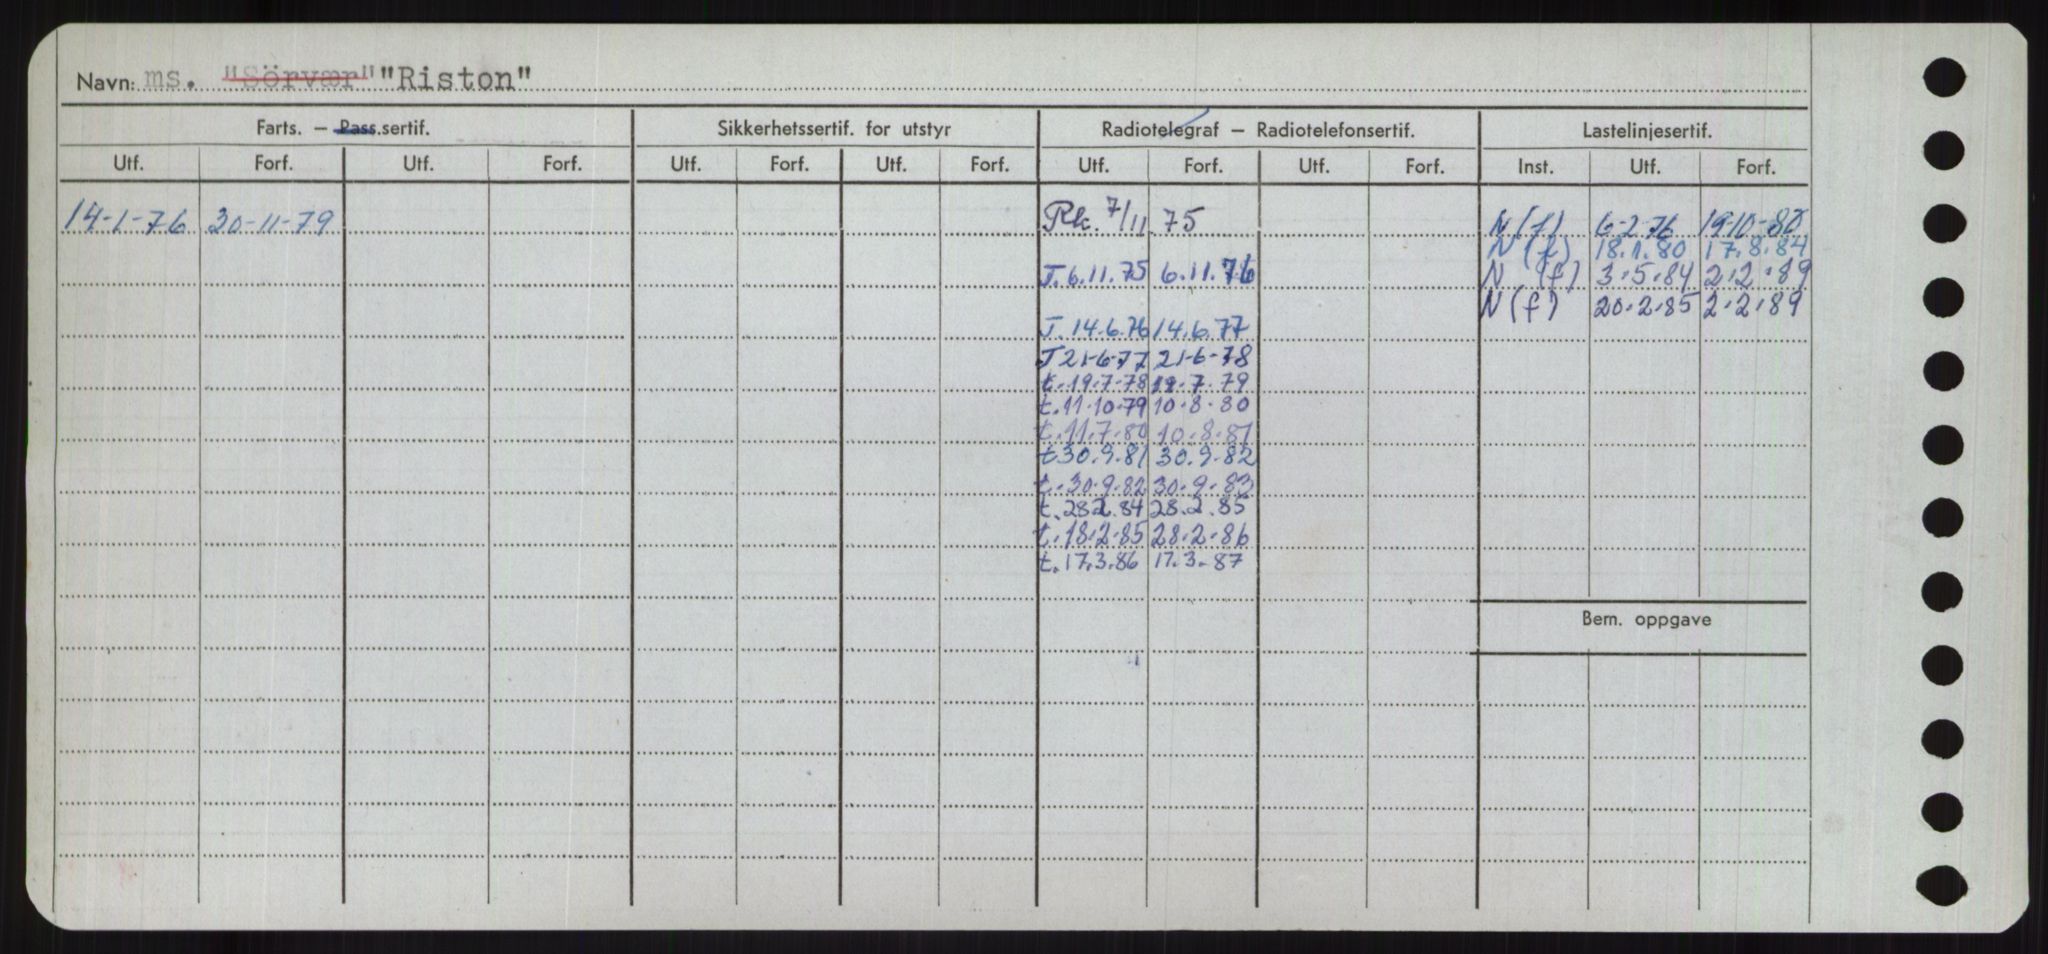 Navn: ms. "Sörvær" "Riston"
Farts. — Pass.sertif. Sikkerhetssertif. for utstyr Radiotelegraf — Radiotelefonsertif. Lastelinjesertif.
Utf. Forf. Utf. Forf. Utf. Forf. Utf. Forf. Utf. Forf. Utf. Forf. Inst. Utf. Forf.
14-1-76 30-11-79 Rk. 7/11. 75 N(f) 6-2-76 19-10-80
N(f) 18.1.80 17.8.84
T. 6.11.75 6.11.76 N (f) 3.5.84 2.2.89
N(f) 20.2.85 2.2.89
T. 14.6.76 14.6.77
T 21-6-77 21-6-78
t. 19.7-78 19.7.79
t. 11.10.79 10.8.80
t. 11.7.80 10.8.81
t 30.9.81 30.9.82
t. 30.9.82 30.9.83
t. 28.2.84 28.2.85
t. 18.2.85 28.2.86
t. 17.3.86 17.3.87
Bem. oppgave